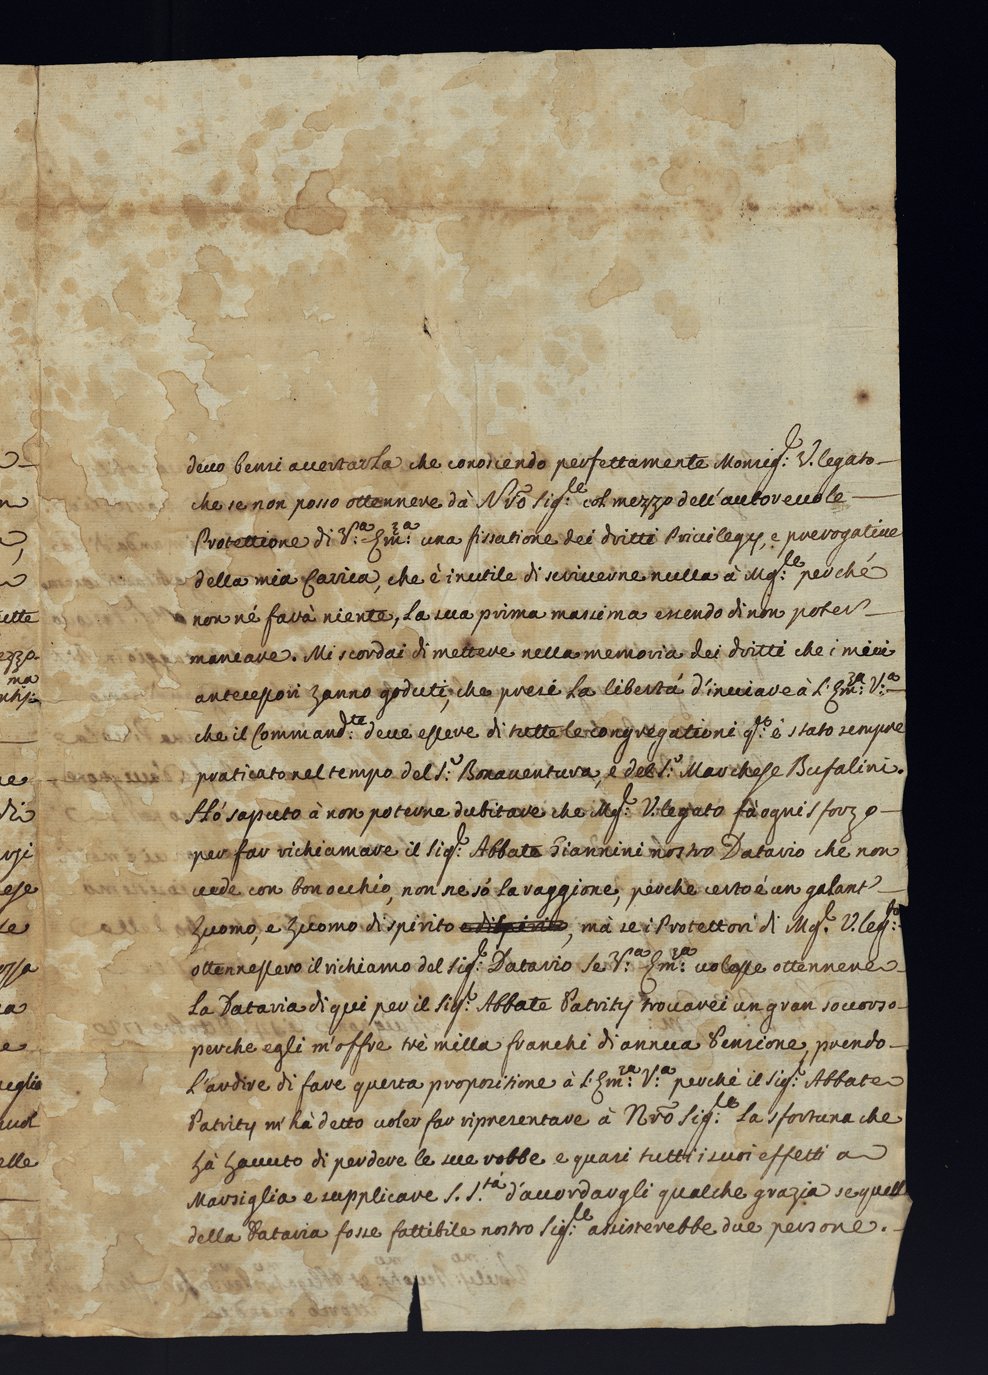 devo bensi accertarLa che conoscendo perfettamente Monsig.r V.legato
che se non posso ottennere dà Nr̃o Sig.re col mezzo dell'autorevole
Protettione di V.a Em.za una fissatione dei dritti Privilegy, e prerogative
della mia Carica, che è inutile di scriverne nulla à Mg.re perché
non né farà niente, La sua prima massima essendo di non poter
mancare. Mi scordai di mettere nella memoria dei dritti che i miei
antecessori hanno goduti, che presi La libertá d'inviare à L'Em.za V.a
che il Command.te deve essere di tutte le congregationi q.to è stato sempre
praticato nel tempo del S.r Bonaventura, e del S.r Marchese Bufalini.
Hò saputo à non poterne dubitare che Mg.r V.legato fà ogni sforzo
per far richiamare il Sig.r Abbate Giannini nostro Datario che non
vede con bon occhio, non ne só La raggione, perche certo é un galant'
huomo, e huomo di spirito e di spirito, mà se i Protettori di Mg.r V.leg.to
ottennessero il richiamo del Sig.r Datario Se V.a Em.za volesse ottennere
La Dataria di qui per il Sig.r Abbate Patrity trovarei un gran soccorso
perche egli m'offre trè milla franchi di annua Pensione, prendo
L'ardire di fare questa propositione à L'Em.za V.a perché il Sig.r Abbate
Patrity m'hà detto voler far ripresentare à Nr̃o Sig.re La sfortuna che
hà havuto di perdere le sue robbe e quasi tutti i suoi effetti a
Marsiglia e supplicare S. S.tá d'accordargli qualche grazia se quell
della Dataria fosse fattibile nostro Sig.re assisterebbe due persone.